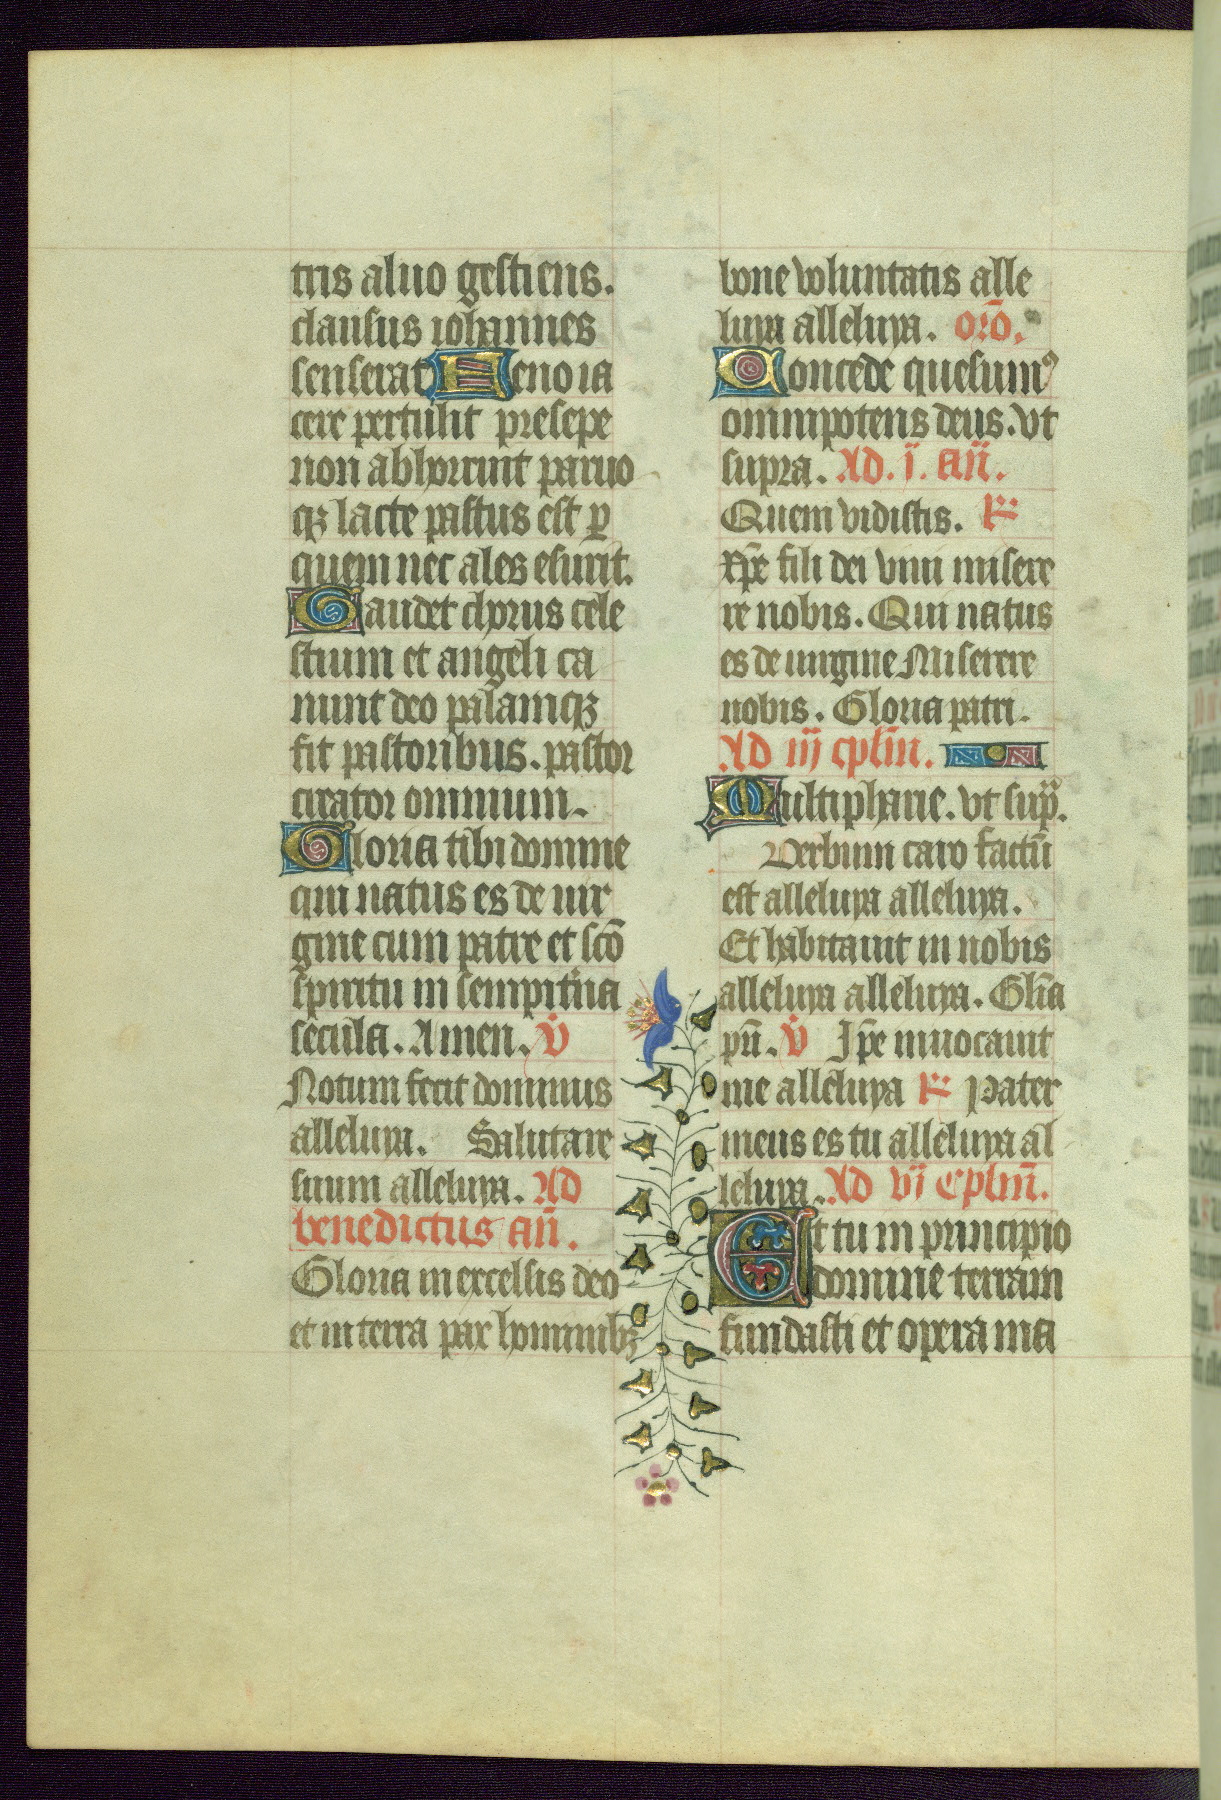 tris aluo gestiens.
clausus iohannes
senserat Feno ia
cere pertulit presepe
non abhorruit paruo
qꝫ lacte pastus est ꝑ
quem nec ales esurit.
Gaudet chorus cele
stium et angeli ca
nunt deo palamqꝫ
fit pastoribus. pastor
creator omnium.
Gloria tibi domine
qui natus es de uir
gine cum patre et scō
spiritu in sempit'na
secula. Amen. v̇
Notum fecit dominus
alleluya. Salutare
suum alleluya. Ad
benedictus an̄.
Gloria in excelsis deo
et in terra pax hominibꝫ
bone voluntatis alle
luya alleluya. orō.
Concede quesumꝰ
omnipotens deus. vt
supra. Ad. i. an̄.
Quem vidistis. R
xp̄e fili dei viui misere
re nobis. Qui natus
es de uirgine Miserere
nobis. Gloria patri.
Ad iij cpl'm.
Multipharie. vt sup.
Verbum caro factū
est alleluya alleluya.
Et habitauit in nobis
alleluya alleluya. Gl'ia
pr̄i. v̇ Ip̄e inuocauit
me alleluya R Pater
meus es tu alleluya al
leluya. Ad vi Cpl'm.
Et tu in principio
domine terram
fundasti et opera ma